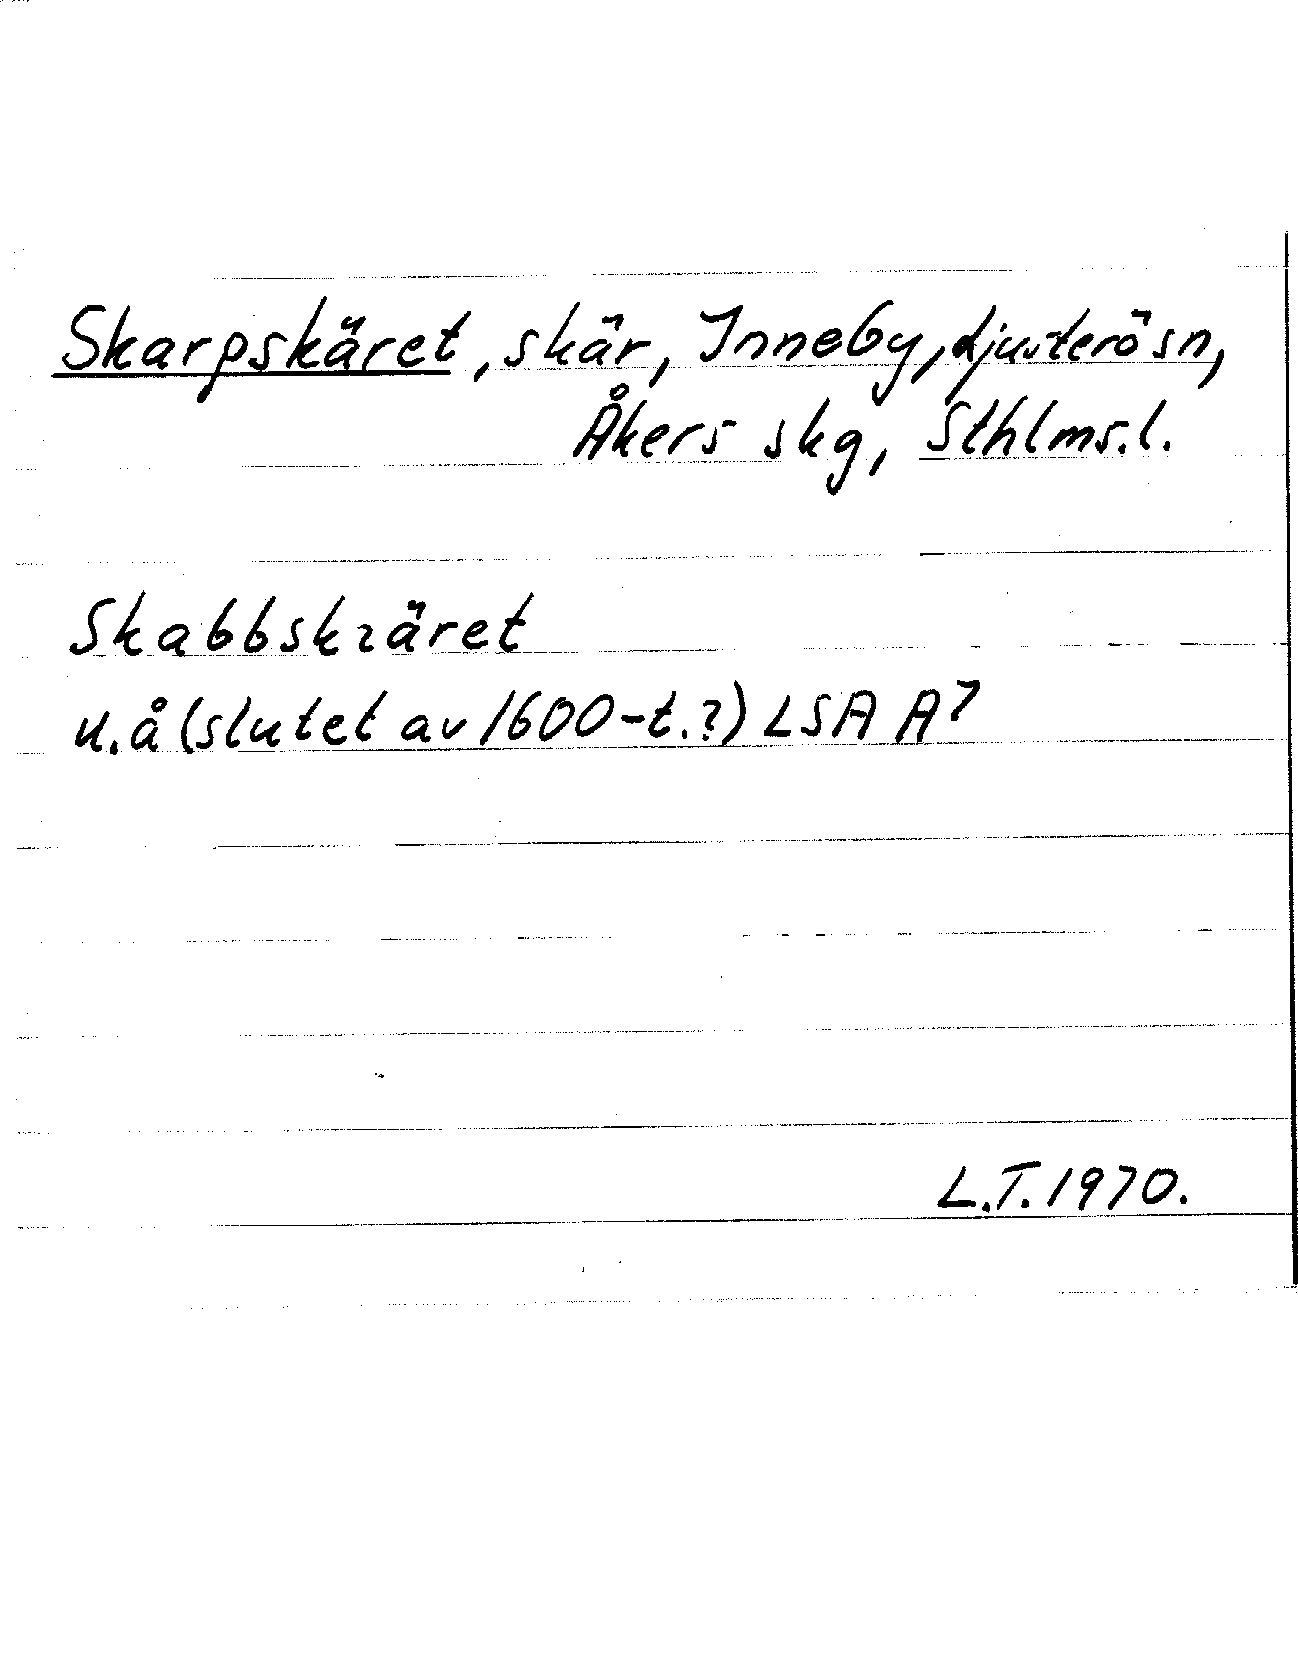 Skarpskäret, skär, Inneby, Ljusterö sn,
Åkers skg, Sthlms.l.
Skabbskiäret
u.å (slutet av 1600-t.?) LSA A7
L.T. 1970.